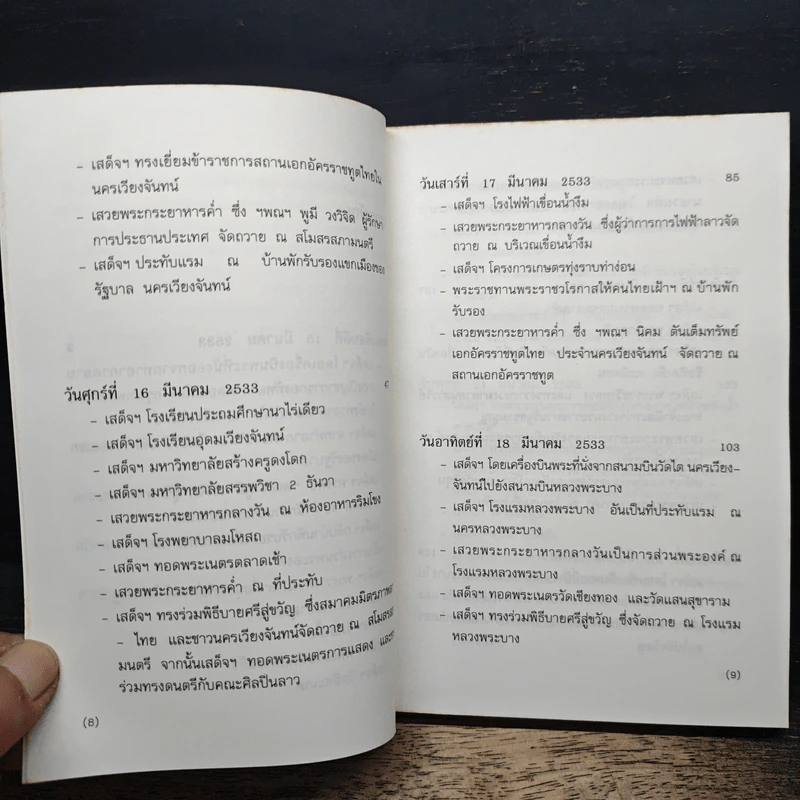 - เสด็จฯ ทรงเยี่ยมข้าราชการสถานเอกอัครราชทูตไทยใน
นครเวียงจันทน์
- เสวยพระกระยาหารค่ำ ซึ่ง ฯพณฯ พูมี วงวิจิด ผู้รักษา
การประธานประเทศ จัดถวาย ณ สโมสรสภามนตรี
- เสด็จฯ ประทับแรม ณ บ้านพักรับรองแขกเมืองของ
รัฐบาล นครเวียงจันทน์
วันศุกร์ที่ 16 มีนาคม 2533
- เสด็จฯ โรงเรียนประถมศึกษานาไร่เดียว
- เสด็จฯ โรงเรียนอุดมเวียงจันทน์
- เสด็จฯ มหาวิทยาลัยสร้างครูดงโดก
- เสด็จฯ มหาวิทยาลัยสรรพวิชา 2 ธันวา
- เสวยพระกระยาหารกลางวัน ณ ห้องอาหารริมโขง
- เสด็จฯ โรงพยาบาลมโหสถ
- เสด็จฯ ทอดพระเนตรตลาดเช้า
- เสวยพระกระยาหารค่ำ ณ ที่ประทับ
- เสด็จฯ ทรงร่วมพิธีบายศรีสู่ขวัญ ซึ่งสมาคมมิตรภาพลาว
- ไทย และชาวนครเวียงจันทน์จัดถวาย ณ สโมสรสภา
มนตรี จากนั้นเสด็จฯ ทอดพระเนตรการแสดง และทรง
ร่วมทรงดนตรีกับคณะศิลปินลาว
(8)
วันเสาร์ที่ 17 มีนาคม 2533 85
- เสด็จฯ โรงไฟฟ้าเขื่อนน้ำงึม
- เสวยพระกระยาหารกลางวัน ซึ่งผู้ว่าการการไฟฟ้าลาวจัด
ถวาย ณ บริเวณเขื่อนน้ำงึม
- เสด็จฯ โครงการเกษตรทุ่งราบท่าง่อน
- พระราชทานพระราชวโรกาสให้คนไทยเฝ้าฯ ณ บ้านพัก
รับรอง
- เสวยพระกระยาหารค่ำ ซึ่ง ฯพณฯ นิคม ตันเต็มทรัพย์
เอกอัครราชทูตไทย ประจำนครเวียงจันทน์ จัดถวาย ณ
สถานเอกอัครราชทูต
วันอาทิตย์ที่ 18 มีนาคม 2533 103
- เสด็จฯ โดยเครื่องบินพระที่นั่งจากสนามบินวัดไต นครเวียง-
จันทน์ไปยังสนามบินหลวงพระบาง
- เสด็จฯ โรงแรมหลวงพระบาง อันเป็นที่ประทับแรม ณ
นครหลวงพระบาง
- เสวยพระกระยาหารกลางวันเป็นการส่วนพระองค์ ณ
โรงแรมหลวงพระบาง
- เสด็จฯ ทอดพระเนตรวัดเชียงทอง และวัดแสนสุขาราม
- เสด็จฯ ทรงร่วมพิธีบายศรีสู่ขวัญ ซึ่งจัดถวาย ณ โรงแรม
หลวงพระบาง
(9)